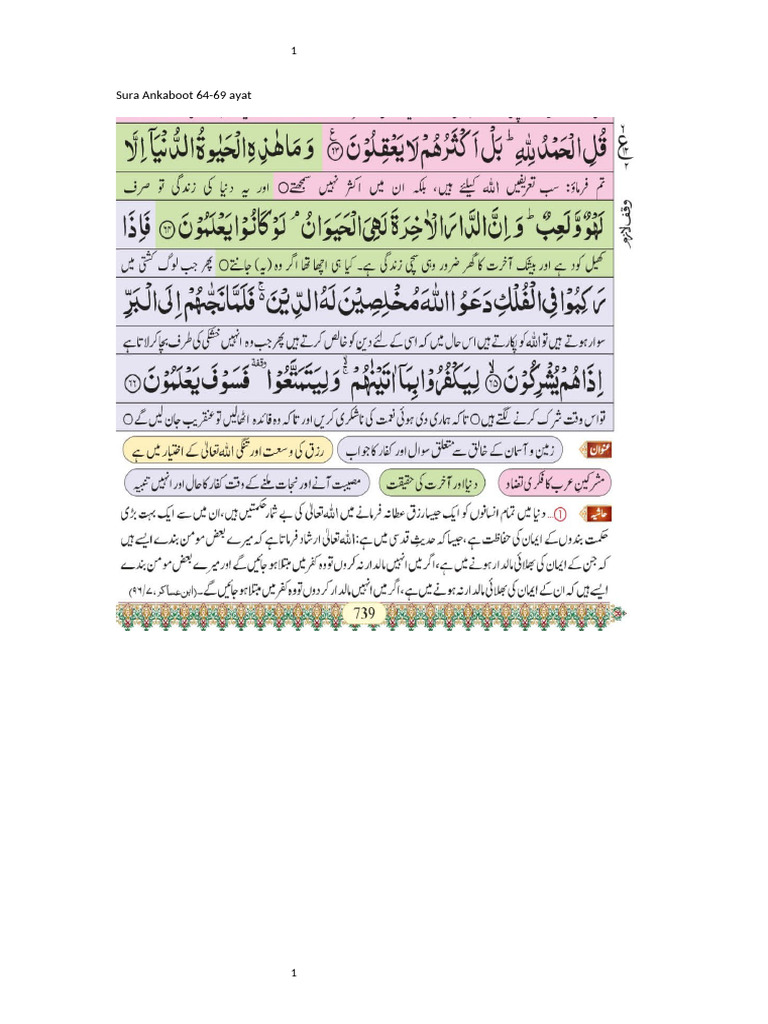 1
Sura Ankaboot 64-69 ayat
قُلِ الْحَمْدُ لِلّٰهِ ؕ بَلْ اَكْثَرُهُمْ لَا یَعْقِلُوْنَ ﴿۶۳﴾ وَ مَا هٰذِهِ الْحَیٰوةُ الدُّنْیَاۤ اِلَّا
تم فرماؤ: سب تعریفیں اللہ کیلئے ہیں، بلکہ ان میں اکثر نہیں سمجھتے○ اور یہ دنیا کی زندگی تو صرف
لَهْوٌ وَّ لَعِبٌ ؕ وَ اِنَّ الدَّارَ الْاٰخِرَةَ لَهِیَ الْحَیَوَانُ ۘ لَوْ كَانُوْا یَعْلَمُوْنَ ﴿۶۴﴾ فَاِذَا
وقف لازم
کھیل کود ہے اور بیشک آخرت کا گھر ضرور وہی سچی زندگی ہے۔ کیا ہی اچھا تھا اگر وہ (یہ) جانتے○ پھر جب لوگ کشتی میں
رَكِبُوْا فِی الْفُلْكِ دَعَوُا اللّٰهَ مُخْلِصِیْنَ لَهُ الدِّیْنَ ۚ۬ فَلَمَّا نَجّٰىهُمْ اِلَى الْبَرِّ
سوار ہوتے ہیں تو اللہ کو پکارتے ہیں اس حال میں کہ اسی کے لئے دین کو خالص کرتے ہیں پھر جب وہ انہیں خشکی کی طرف بچا کر لاتا ہے
اِذَا هُمْ یُشْرِكُوْنَ ﴿۶۵﴾ لِیَكْفُرُوْا بِمَاۤ اٰتَیْنٰهُمْ ۙۚ وَ لِیَتَمَتَّعُوْا ٝ فَسَوْفَ یَعْلَمُوْنَ ﴿۶۶﴾
تو اس وقت شرک کرنے لگتے ہیں○ تاکہ ہماری دی ہوئی نعمت کی ناشکری کریں اور تاکہ وہ فائدہ اٹھالیں تو عنقریب جان لیں گے○
عنوان زمین و آسمان کے خالق سے متعلق سوال اور کفار کا جواب رزق کی وسعت اور تنگی اللہ تعالیٰ کے اختیار میں ہے
مشرکینِ عرب کا فکری تضاد دنیا اور آخرت کی حقیقت مصیبت آنے اور نجات ملنے کے وقت کفار کا حال اور انہیں تنبیہ
حاشیہ ①... دنیا میں تمام انسانوں کو ایک جیسا رزق عطا نہ فرمانے میں اللہ تعالیٰ کی بے شمار حکمتیں ہیں، ان میں سے ایک بہت بڑی
حکمت بندوں کے ایمان کی حفاظت ہے، جیسا کہ حدیثِ قدسی میں ہے: اللہ تعالیٰ ارشاد فرماتا ہے کہ میرے بعض مومن بندے ایسے ہیں
کہ جن کے ایمان کی بھلائی مالدار ہونے میں ہے، اگر میں انہیں مالدار نہ کروں تو وہ کفر میں مبتلا ہو جائیں گے اور میرے بعض مومن بندے
ایسے ہیں کہ ان کے ایمان کی بھلائی مالدار نہ ہونے میں ہے، اگر میں انہیں مالدار کر دوں تو وہ کفر میں مبتلا ہو جائیں گے۔ (ابن عساکر، ۷/ ۹۶)
739
1